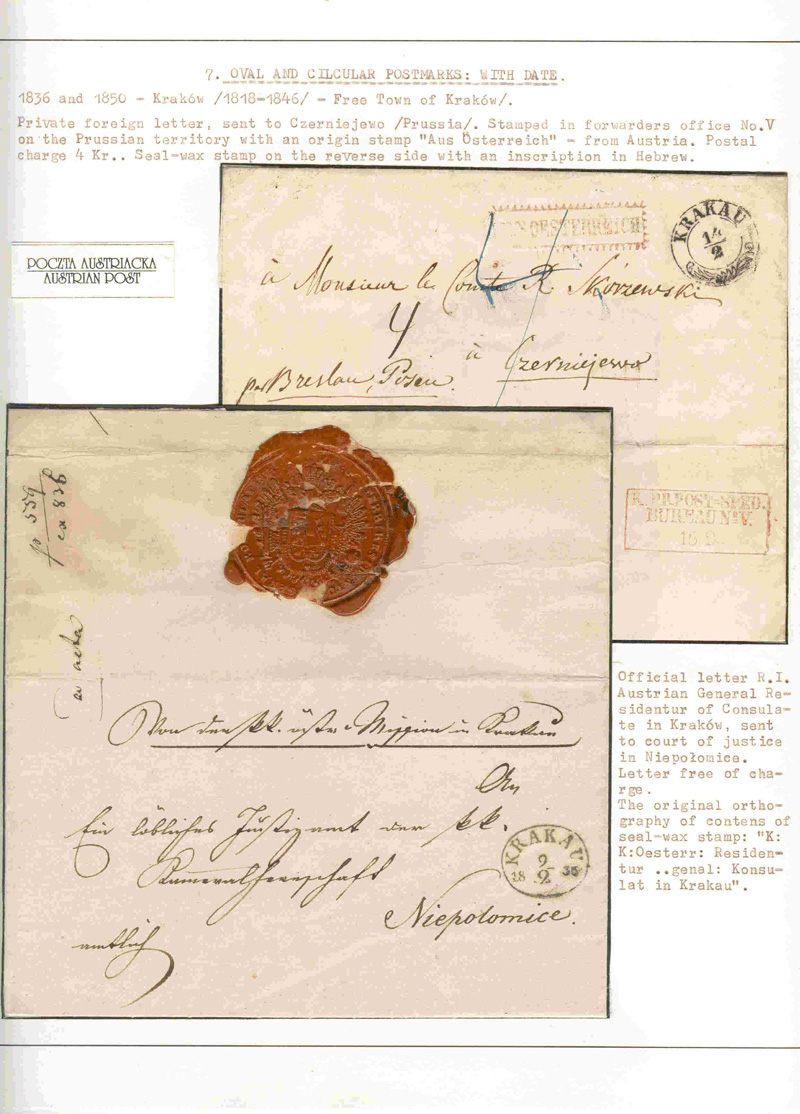 7. OVAL AND CILCULAR POSTMARKS: WITH DATE.
1836 and 1850 - Kraków /1818-1846/ - Free Town of Kraków/.
Private foreign letter, sent to Czerniejewo /Prussia/. Stamped in forwarders office No.V
on the Prussian territory with an origin stamp "Aus Österreich" - from Austria. Postal
charge 4 Kr.. Seal-wax stamp on the reverse side with an inscription in Hebrew.
POCZTA AUSTRIACKA
AUSTRIAN POST
OESTERREICH
KRAKAU
14/2
à Monsieur le Comte R. Skórzewski
4
à Czerniejewo
par Breslau, Posen.
K. PR. POST-SPED.
BUREAU No V.
ad acta
Von der kk. östr. Mission in Krakau
An
Ein löbliches Justizamt der kk.
Kameralherrschaft
Niepolomice.
amtlich
KRAKAU
9/2
18 36
Official letter R.I.
Austrian General Re-
sidentur of Consula-
te in Kraków, sent
to court of justice
in Niepołomice.
Letter free of cha-
rge.
The original ortho-
graphy of contens of
seal-wax stamp: "K:
K:Oesterr: Residen-
tur ..genal: Konsu-
lat in Krakau".